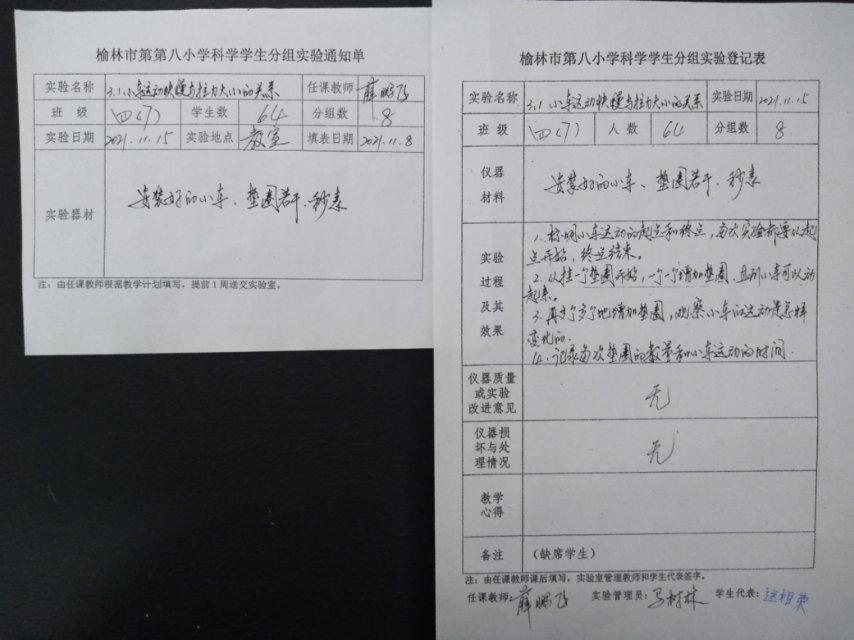 榆林市第第八小学科学学生分组实验通知单
实验名称 3.1小车运动快慢与拉力大小的关系 任课教师 薛鹏飞
班 级 四(7) 学生数 64 分组数 8
实验日期 2021.11.15 实验地点 教室 填表日期 2021.11.8
实验器材 安装好的小车、垫圈若干、秒表
注:由任课教师根据教学计划填写,提前1周送交实验室。
榆林市第第八小学科学学生分组实验登记表
实验名称 3.1小车运动快慢与拉力大小的关系 实验日期 2021.11.15
班 级 四(7) 人 数 64 分组数 8
仪器
材料
安装好的小车、垫圈若干、秒表
实验
过程
及其
效果
1.标明小车运动的起点和终点,每次实验都要从起
点开始,终点结束。
2.从挂一个垫圈开始,一个一个增加垫圈,直到小车可以动
起来。
3.再多个多个地增加垫圈,观察小车的运动是怎样
变化的.
4.记录每次垫圈的数量和小车运动的时间.
仪器质量
或实验
改进意见
无
仪器损
坏与处
理情况
无
教学
心得
备注 (缺席学生)
注:由任课教师课后填写,实验室管理教师和学生代表签字。
任课教师:薛鹏飞 实验管理员:马树林 学生代表: